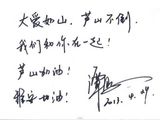 大爱如山，芦山不倒，
我们和你在一起！
芦山加油！
雅安加油！
2013.4.29.